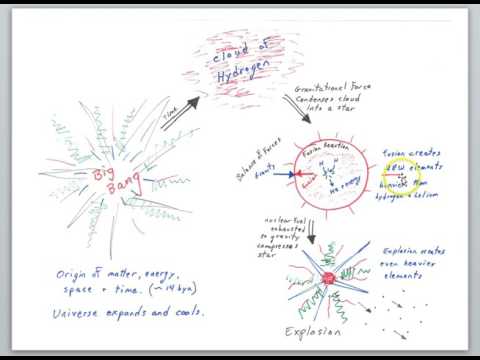 Cloud of
Hydrogen
TIME
Gravitational Force
Condenses cloud
into a star
Big
Bang
Balance of Forces
Gravity
Fusion Reaction
He + energy
Fusion creates
new elements
heavier than
hydrogen & helium
nuclear fuel
exhausted
so gravity
compresses
star
Origin of matter, energy,
space + time. (~14 byn)
Universe expands and cools.
Explosion creates
even heavier
elements
Explosion